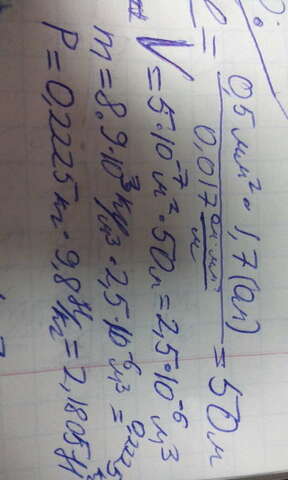 l = 0,5 мм² · 1,7 (Ом) / 0,017 Ом·мм²/м = 50 м
V = 5·10⁻⁷ м² · 50 м = 2,5·10⁻⁶ м³
m = 8.9·10³ кг/м³ · 2,5·10⁻⁶ м³ = 0,2225
P = 0,2225 кг · 9,8 Н/кг = 2,1805 Н